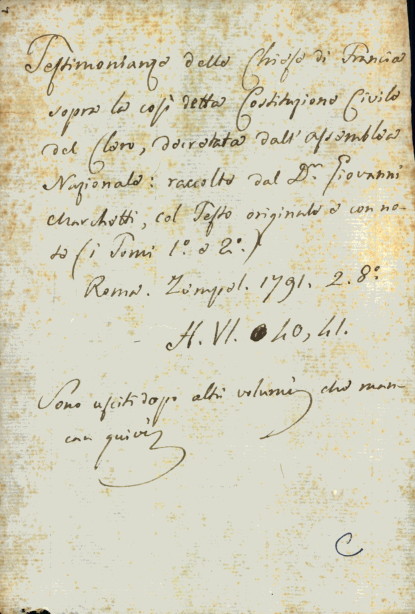 Testimonianze delle Chiese di Francia
sopra la così detta Costituzione Civile
del Clero, decretata dall'Assemblea
Nazionale: raccolte dal Dr. Giovanni
Marchetti, col Testo originale e con no-
te (i Tomi 1º. e 2º.)
Roma. Zempel. 1791. 2. 8º.
H. VI. 40, 41.
Sono usciti dopo altri volumi che man-
can quivi
C